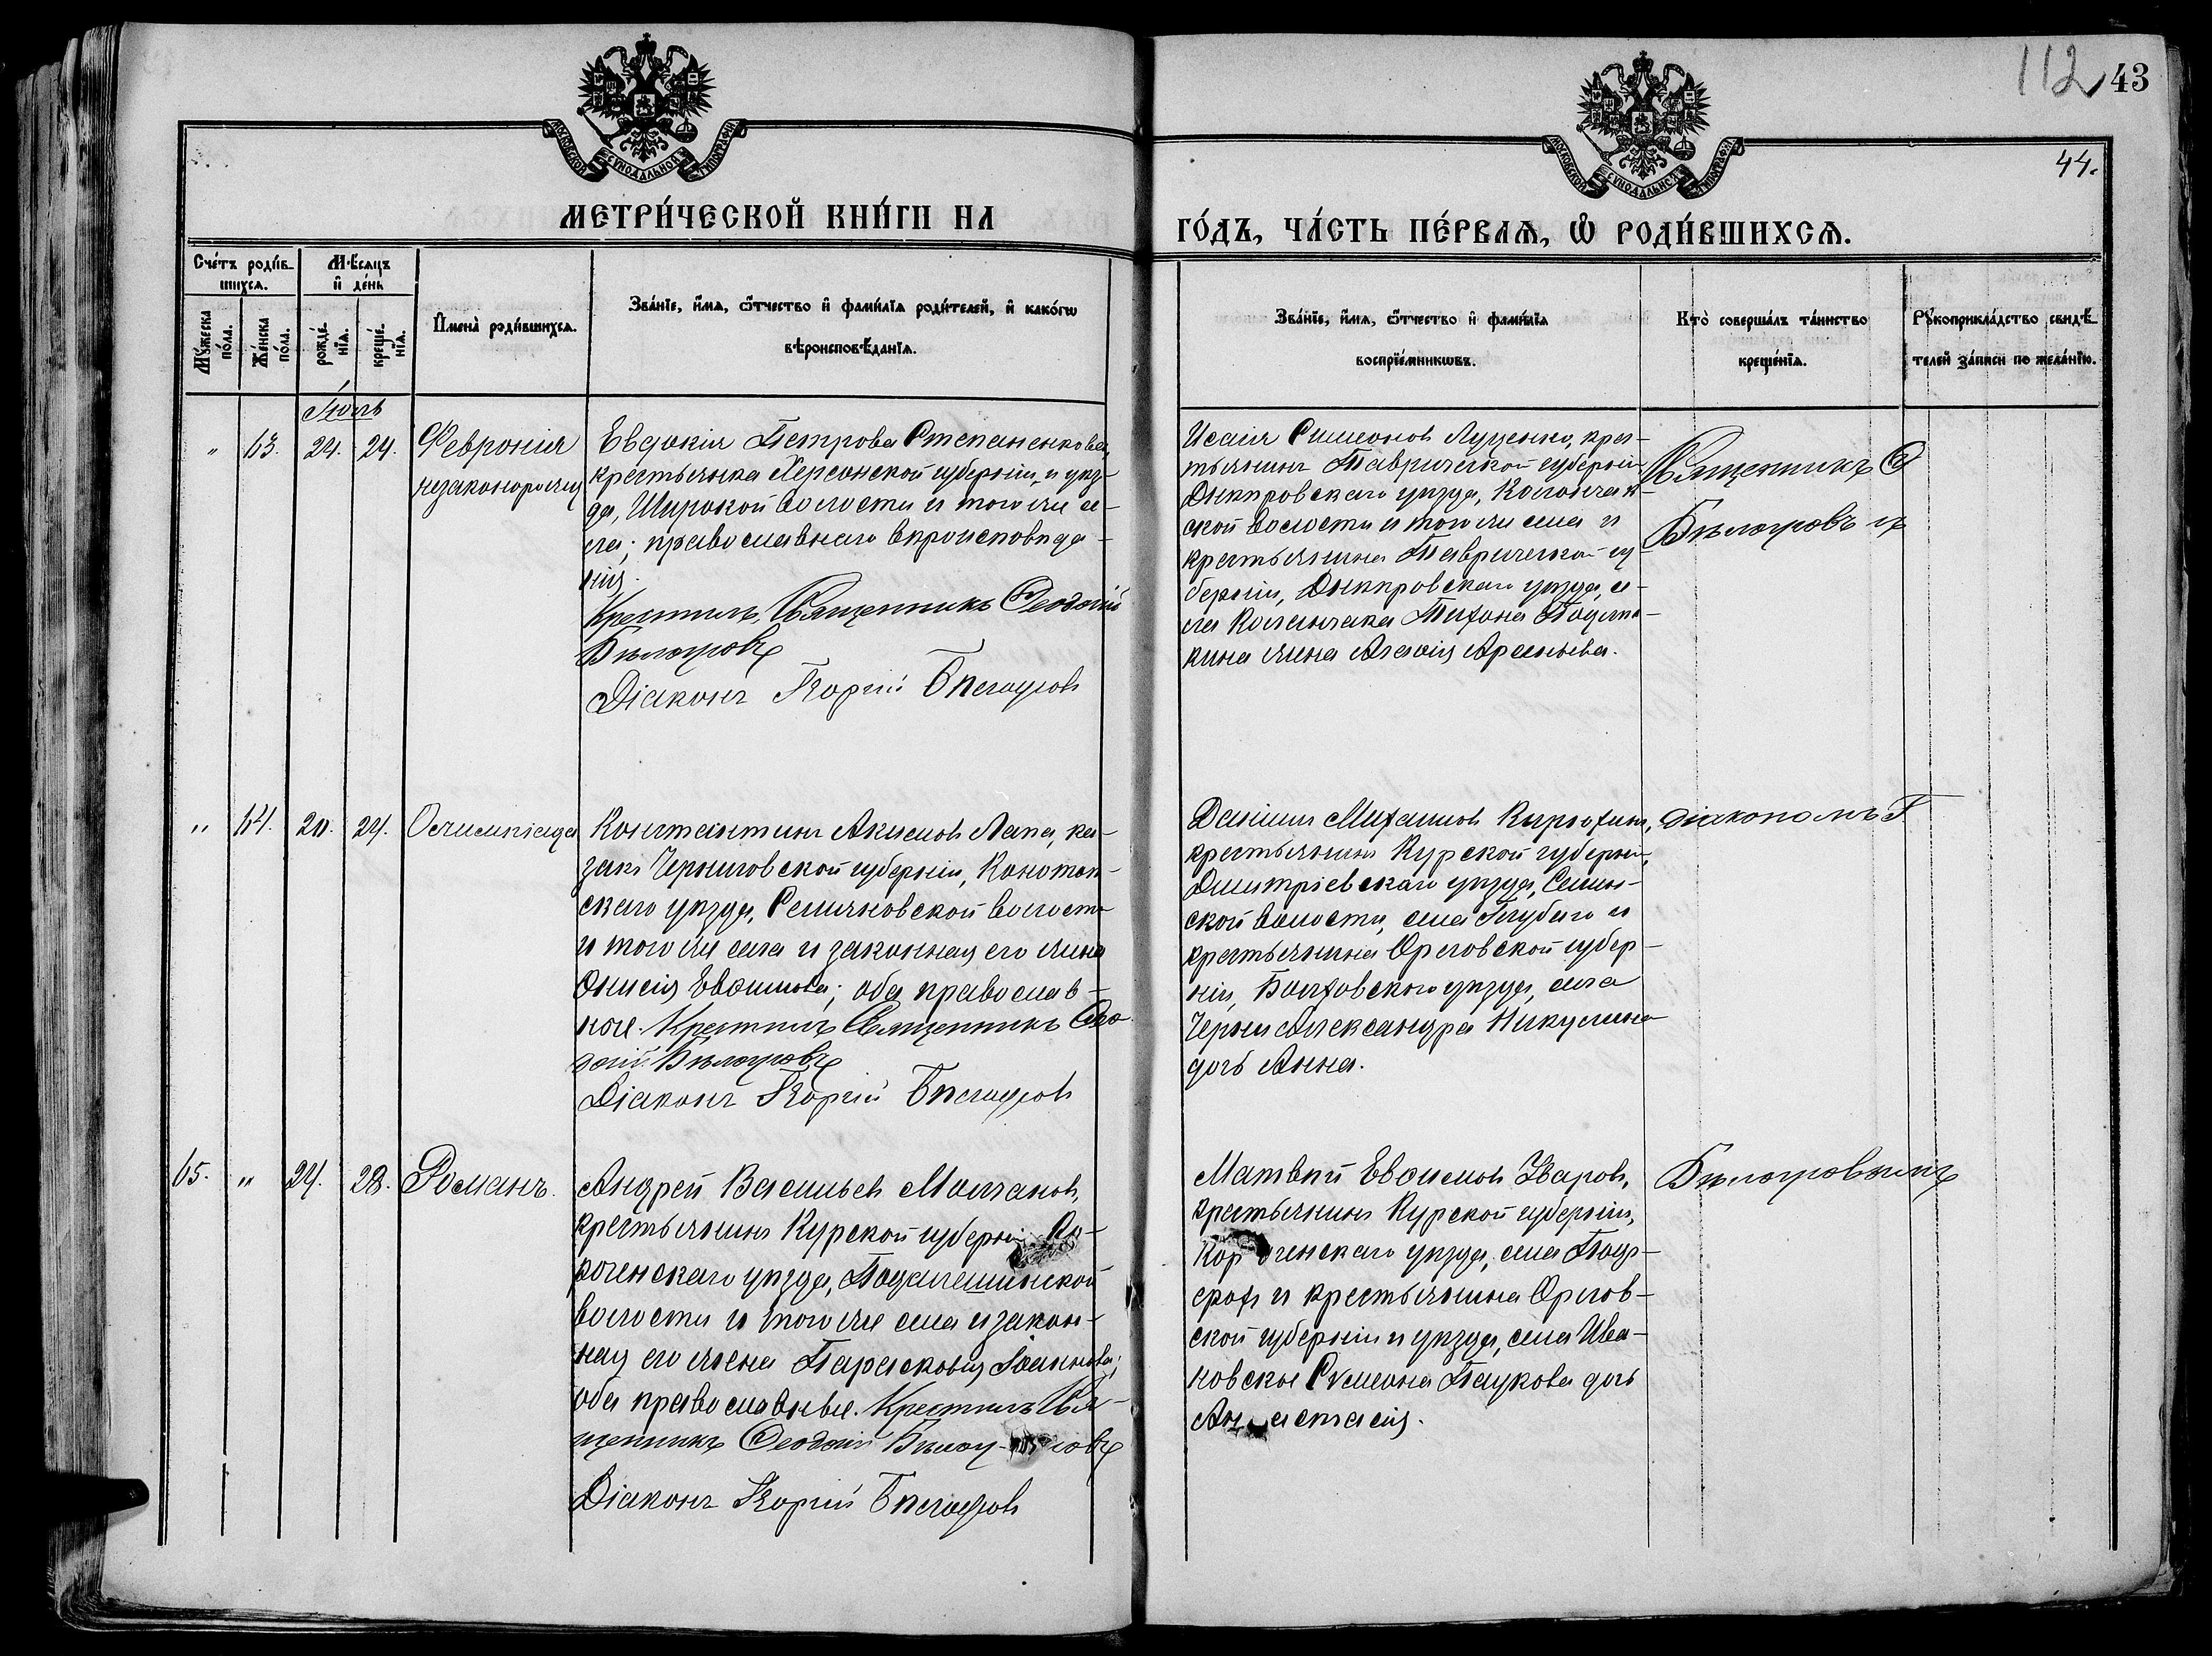 112 43
44.
МОСКОВСКОЙ СУНОДАЛЬНОЙ ТИПОГРАФІИ
МОСКОВСКОЙ СУНОДАЛЬНОЙ ТИПОГРАФІИ
МЕТРИ́ЧЕСКОЙ КНИ́ГИ НА
ГО́ДЪ, ЧА́СТЬ ПЕ́РВАѦ, Ѽ РОДИ́ВШИХСѦ.
Сче́тъ роди́в-
шихсѧ.
Мѣ́сѧцъ
и҆ де́нь
Мꙋ́жеска
по́ла.
Же́нска
по́ла.
рожде́-
нїѧ.
креще́-
нїѧ.
И҆мена̀ роди́вшихсѧ.
Зва́нїе, и҆́мѧ, ѻ҆́тчество и҆ фами́лїѧ роди́телей, и҆ како́гѡ
вѣроисповѣ́данїѧ.
Зва́нїе, и҆́мѧ, ѻ҆́тчество и҆ фами́лїѧ
воспрїе́мникѡвъ.
Кто̀ соверша́лъ та́инство
креще́нїѧ.
Рꙋкоприкла́дство свидѣ́-
телей за́писи по жела́нїю.
Іюль
" 63. 24. 24. Февронія
незаконорожд
Евдокія Петрова Степаненкова,
крестьянка Херсонской губерніи и уѣз-
да, Широкой волости и того же се-
ла; православнаго вѣроисповѣда-
нія.
Крестилъ Священникъ Ѳеодосій
Бѣлоусовъ
Діаконъ Георгій Бѣлоусовъ
Исаія Симеоновъ Луценко, крес-
тьянинъ Таврической губерніи
Днѣпровскаго уѣзда, Каланчак-
ской волости и того же села и
крестьянина Таврической гу-
берніи, Днѣпровскаго уѣзда, се-
ла Каланчака Тихона
жена Агафія Арсеньева.
Священникъ Ѳ
Бѣлоусовъ съ
" 64. 20. 24. Олимпіада
Константинъ Акимовъ Лапа, ка-
закъ Черниговской губерніи, Конотоп-
скаго уѣзда, волости
и того же села и законная его жена
Анисія Евфимова; оба православ-
ные. Крестилъ Священникъ Ѳео-
досій Бѣлоусовъ
Діаконъ Георгій Бѣлоусовъ
Даніилъ Михаиловъ
крестьянинъ Курской губерніи,
Дмитріевскаго уѣзда,
ской волости, села и
крестьянина Орловской губер-
ніи, Болховскаго уѣзда, села
Черни Александра Никулина
дочь Анна.
діакономъ Г
65. " 24. 28. Романъ.
Андрей Васильевъ Молчановъ,
крестьянинъ Курской губерніи Ко-
роченскаго уѣзда,
волости и того же села и закон-
ная его жена Парасковія Іоаннова;
оба православные. Крестилъ Свя-
щенникъ Ѳеодосій Бѣлоу-совъ
Діаконъ Георгій Бѣлоусовъ
Матвѣй Евфимовъ Уваровъ,
крестьянинъ Курской губерніи,
Короченскаго уѣзда, села
и крестьянина Орлов-
ской губерніи и уѣзда, села Ива-
новское Симеона Паукова дочь
Анастасія.
Бѣлоусовымъ